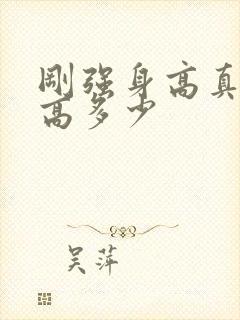 刚强身高真
高多少
吴萍